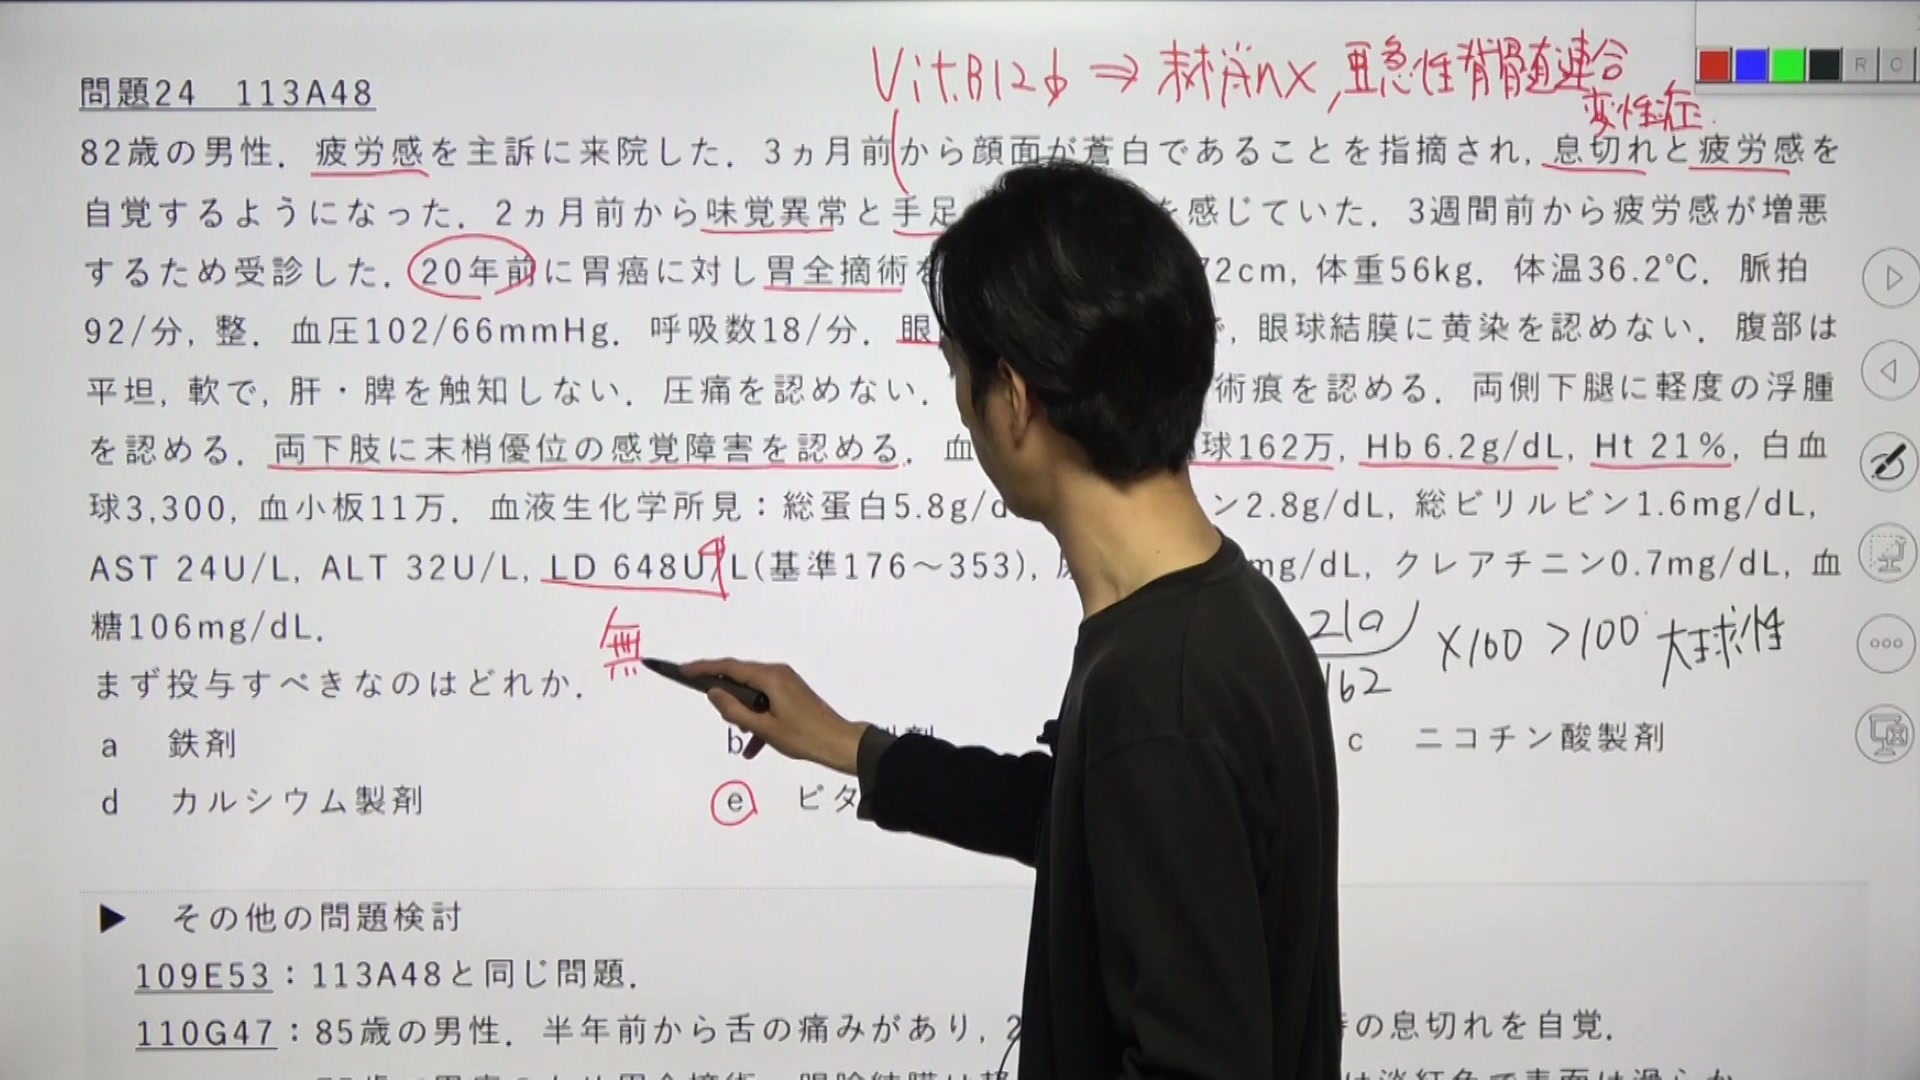 VitB12φ ⇒ 末梢nX, 亜急性脊髄連合
変性症
問題24 113A48
82歳の男性. 疲労感を主訴に来院した. 3ヵ月前から顔面が蒼白であることを指摘され, 息切れと疲労感を
自覚するようになった. 2ヵ月前から味覚異常と手足 を感じていた. 3週間前から疲労感が増悪
するため受診した. 20年前に胃癌に対し胃全摘術を 72cm, 体重56kg. 体温36.2℃. 脈拍
92/分, 整. 血圧102/66mmHg. 呼吸数18/分. 眼 , 眼球結膜に黄染を認めない. 腹部は
平坦, 軟で, 肝・脾を触知しない. 圧痛を認めない. 術痕を認める. 両側下腿に軽度の浮腫
を認める. 両下肢に末梢優位の感覚障害を認める. 血 球162万, Hb 6.2g/dL, Ht 21%, 白血
球3,300, 血小板11万. 血液生化学所見：総蛋白5.8g/d ン2.8g/dL, 総ビリルビン1.6mg/dL,
AST 24U/L, ALT 32U/L, LD 648U/L(基準176～353), mg/dL, クレアチニン0.7mg/dL, 血
糖106mg/dL.
無
210/162 ×100 >100 大球性
まず投与すべきなのはどれか.
a 鉄剤 b 製剤 c ニコチン酸製剤
d カルシウム製剤 e ビタ
▶ その他の問題検討
109E53：113A48と同じ問題.
110G47：85歳の男性. 半年前から舌の痛みがあり, 2 の息切れを自覚.
R C